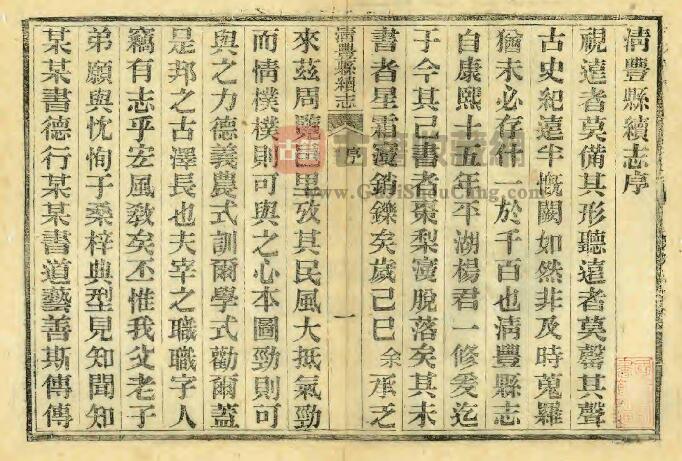 清豐縣續志序
視遠者莫備其形聽遠者莫罄其聲
古史紀遠半慨闕如然非及時蒐羅
猶未必存什一於千百也清豐縣志
自康熙十五年平湖楊君一修爰迄
于今其已書者棗梨寖脫落矣其未
書者星霜寖銷鑠矣歲己巳余承乏
清豐縣續志 序 一
來茲周覽邑里攷其民風大抵氣勁
而情樸樸則可與之心本圖勁則可
與之力德義農式訓爾學式勸爾蓋
是邦之古澤長也夫宰之職職字人
竊有志乎宏風敎矣丕惟我父老子
弟願與忱恂于桑梓典型見知聞知
某某書德行某某書道藝善斯傳傳
GuJiShuCang.com